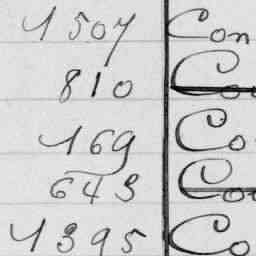 1507 Con
810 Co
169 Co
643 Co
1395 Co